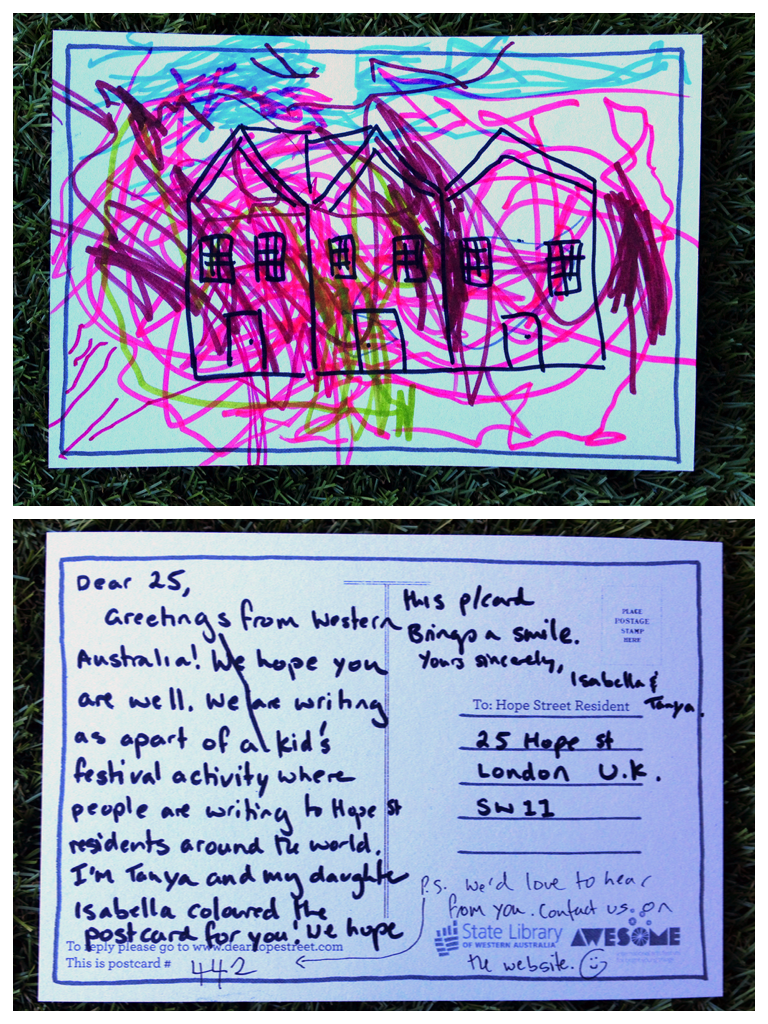 Dear 25,
Greetings from Western
Australia! We hope you
are well. We are writing
as apart of a kid's
festival activity where
people are writing to Hope St
residents around the world.
I'm Tanya and my daughter
Isabella coloured the
postcard for you! We hope
this p/card
Brings a smile.
Yours sincerely,
Isabella &
Tanya.
PLACE
POSTAGE
STAMP
HERE
To: Hope Street Resident
25 Hope St
London U.K.
SW11
P.S. We'd love to hear
from you. Contact us on
the website.
To reply please go to www.dearhopestreet.com
This is postcard # 442
State Library
OF WESTERN AUSTRALIA
AWESOME